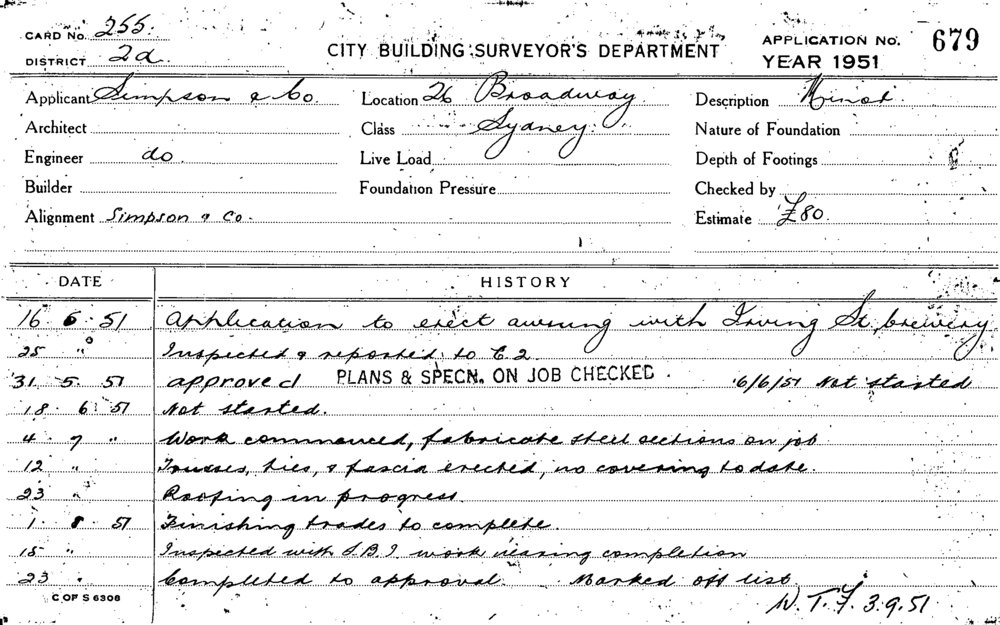 CARD No. 255.
DISTRICT 2a
CITY BUILDING SURVEYOR'S DEPARTMENT
APPLICATION No. 679
YEAR 1951
Applicant Simpson & Co. Location 26 Broadway Description Minor
Architect Class Sydney. Nature of Foundation
Engineer do Live Load Depth of Footings
Builder Foundation Pressure Checked by
Alignment Simpson & Co. Estimate £80.
DATE HISTORY
16 5 51 Application to erect awning with Irving St, brewery
25 " Inspected & reported to C.2.
31. 5. 51 approved PLANS & SPECN. ON JOB CHECKED. 6/6/51 Not started
18. 6. 51 Not started.
4. 7 " Work commenced, fabricate steel sections on job
12 " Trusses, ties, & fascia erected, no covering to date.
23 " Roofing in progress
1. 8. 51 Finishing trades to complete.
15 " Inspected with S.B.I. work nearing completion
23 " Completed to approval. Marked off list
C OF S 6308
W.T.F. 3.9.51